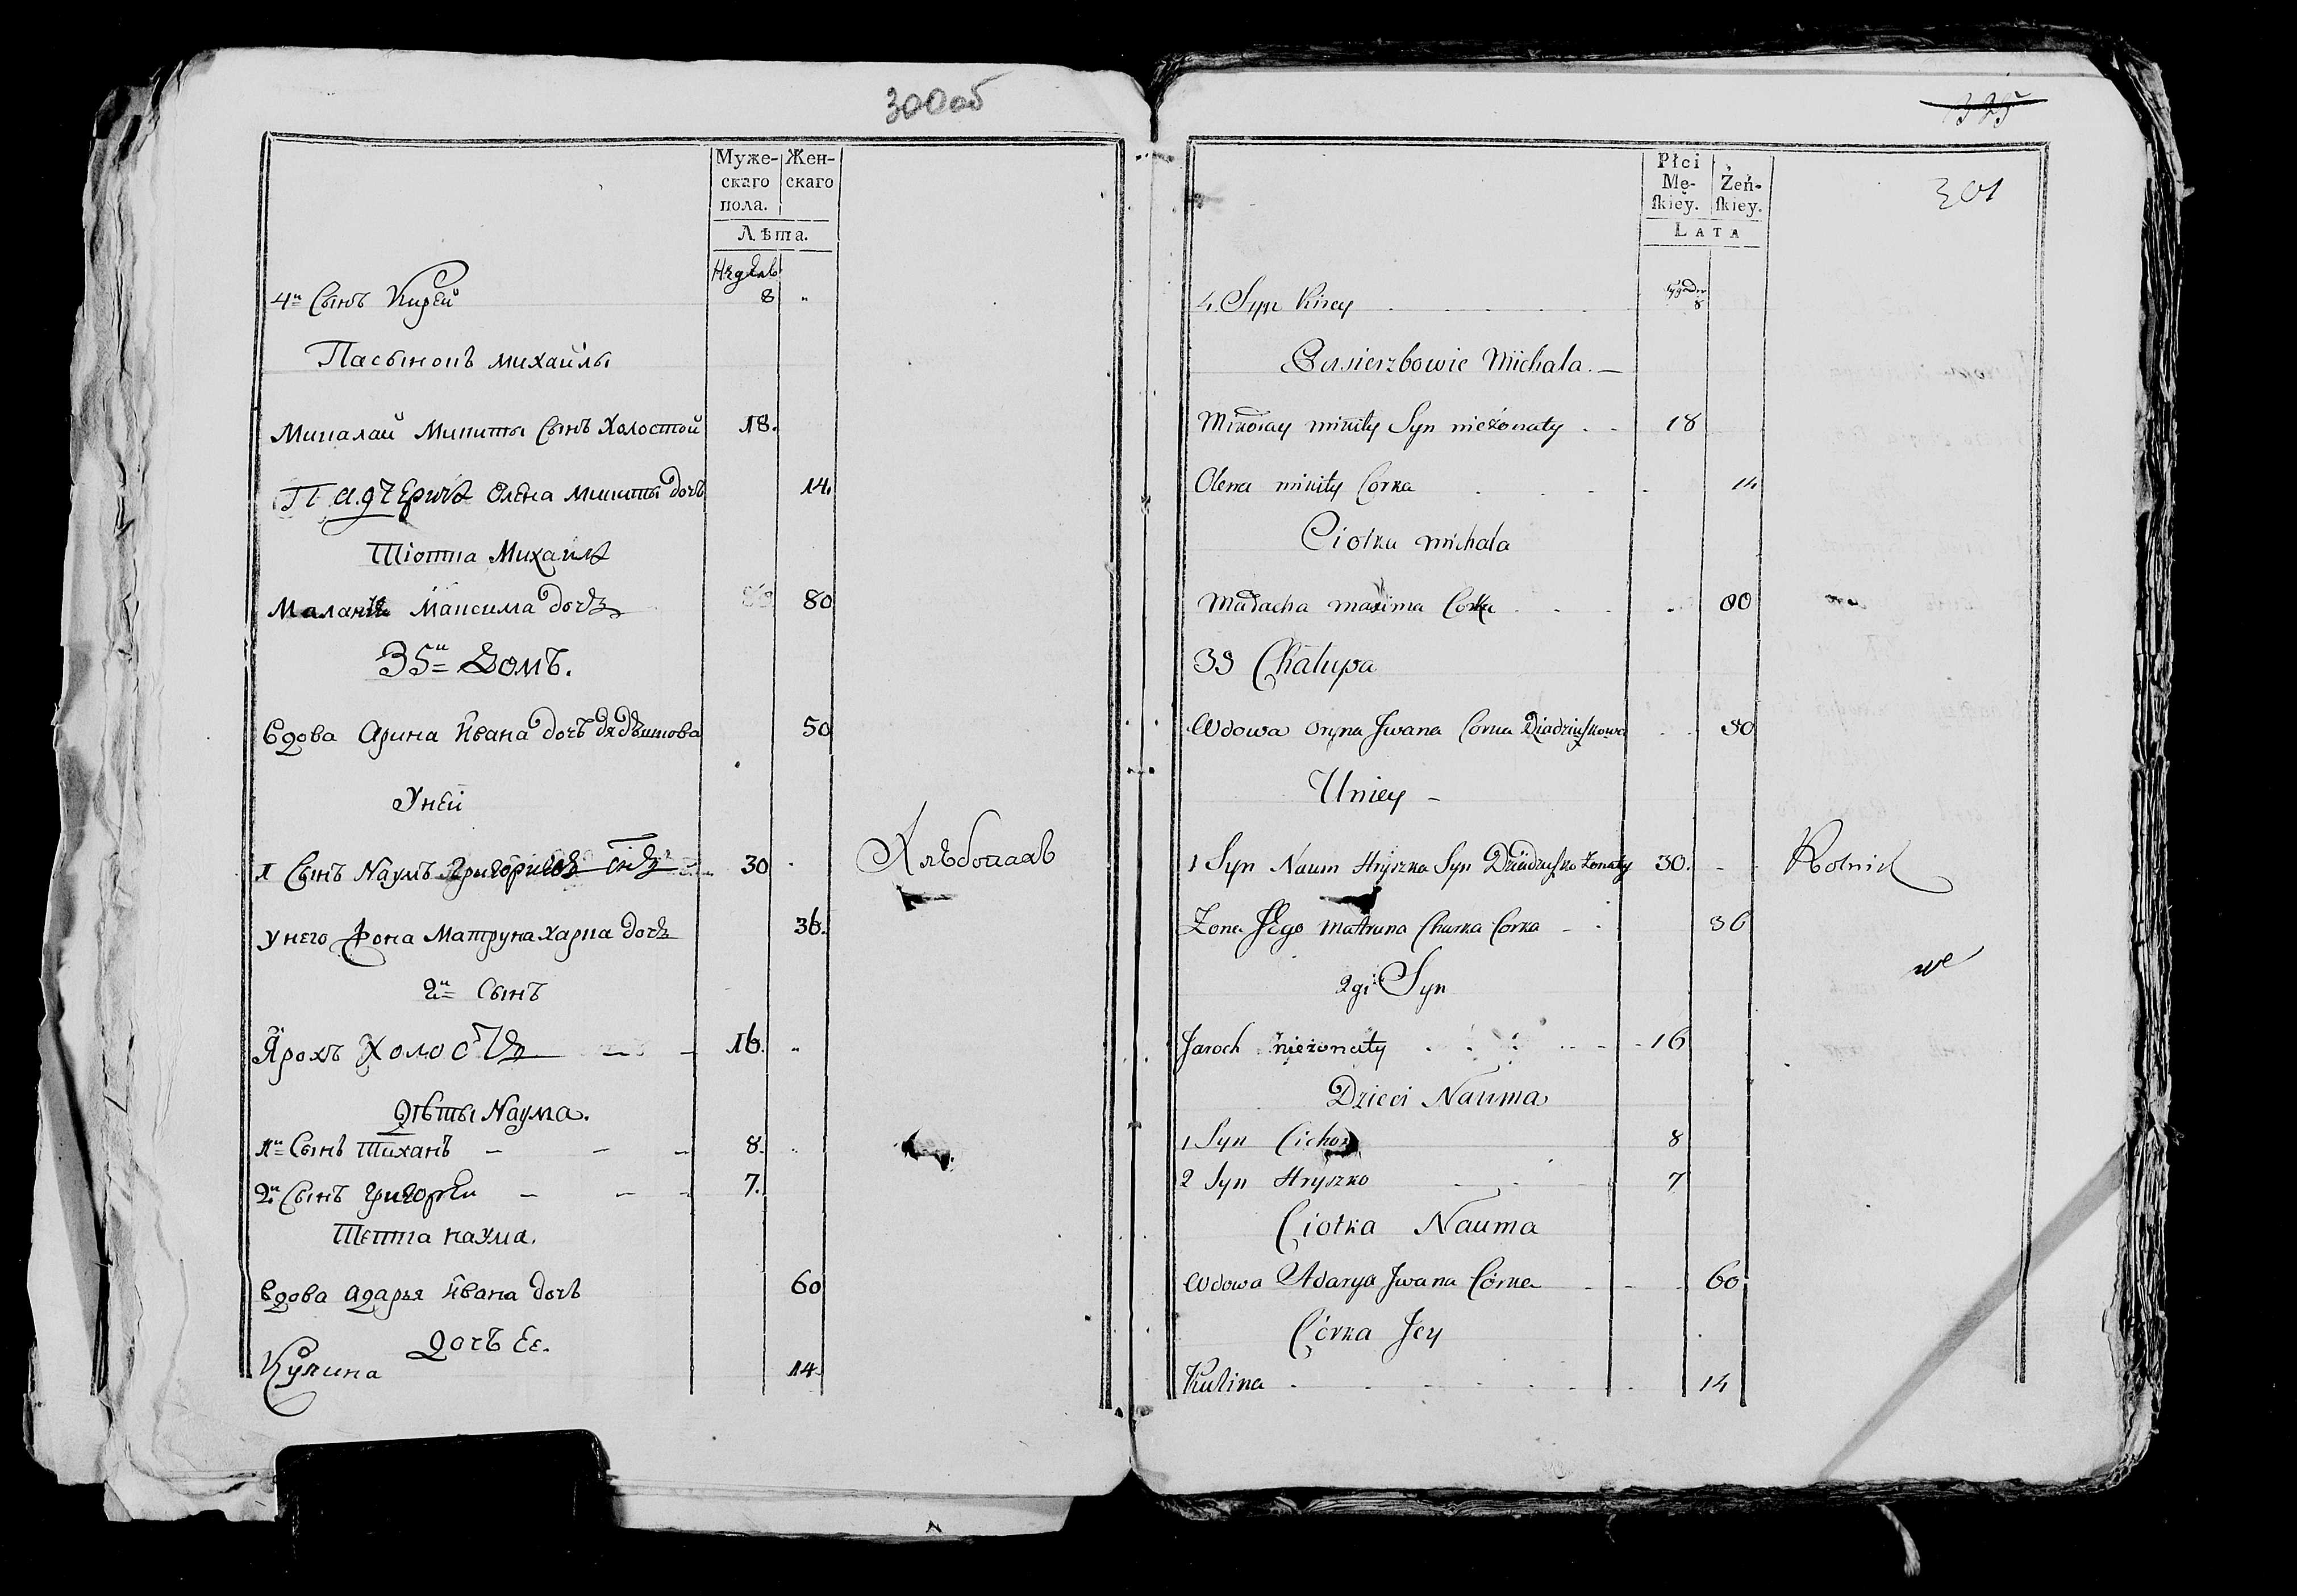 300об
Муже- Жен-
скаго скаго
пола.
Лѣта.
Недѣль
4й Сынъ Кирей 8 "
Пасынокъ михайлы
Микалай Микиты Сынъ Холостой 18.
Падчерица Олена Микиты дочь 14.
Тіотка Михайла
Малания Максима дочь 80
35й Домъ.
Вдова Арина Ивана дочъ 50
Уней
1 Сынъ Наумъ Григорьевъ 30 Хлѣбопашъ
унего Жона Матруна Харка дочь 36.
2й Сынъ
Ярохъ Холостъ 16. "
Дѣты Наума.
1й Сынъ Тиханъ 8.
2й Сынъ григорѣи 7.
Тетка наума.
Вдова адарья Ивана дочь 60
Дочъ Ее.
Кулина 14.
325
301
Płci
Mę- Żeń-
skiey. skiey.
LATA
4. Syn Kirey 8
Pasierzbowie Michala. —
Mikołay mikity Syn nieżonaty 18
Olena mikity Corka 14
Ciotka michala
Małacha maxima Corka 80
35 Chalupa
Wdowa oryna Jwana Corka 50
Uniey —
1 Syn Naum Hryszka Syn Żonaty 30. Rolnik
Żona Jego matruna Charka Corka 36
we
2gi Syn
Jaroch nieżonaty 16
Dzieci Nauma
1 Syn Cichon 8
2 Syn Hryszko 7
Ciotka Nauma
Wdowa Adarya Jwana Córka 60
Córka Jey
Kulina 14